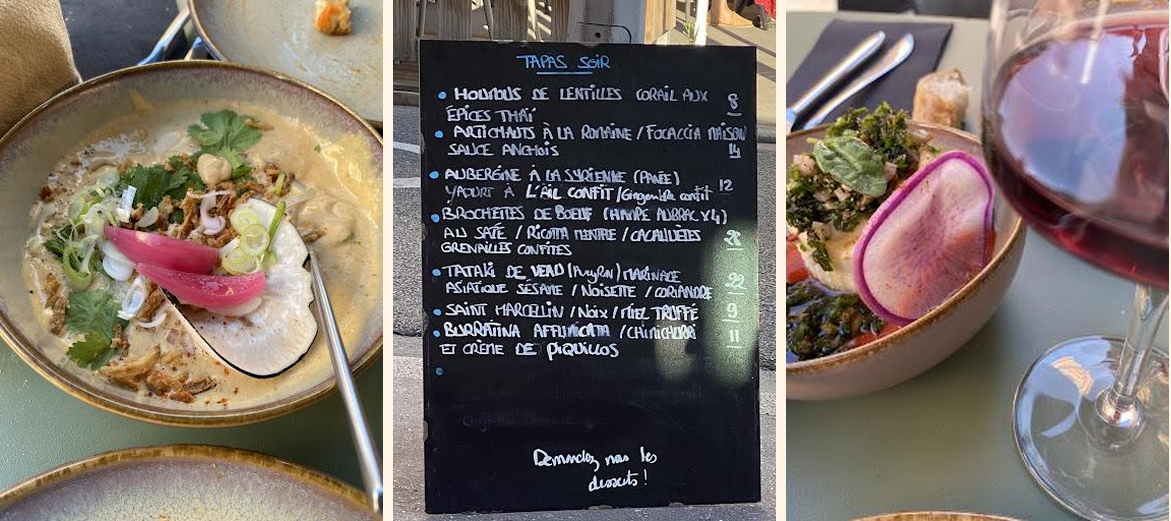 TAPAS SOIR
HOUMOUS DE LENTILLES CORAIL AUX 8
ÉPICES THAÏ
ARTICHAUTS À LA ROMAINE / FOCACCIA MAISON
SAUCE ANCHOIS 14
AUBERGINE À LA SYRIENNE (PANÉE)
YAOURT À L'AIL CONFIT / Gingembre confit 12
BROCHETTES DE BOEUF (HAMPE AUBRAC X4)
AU SATÉ / RICOTTA MENTHE / CACAHUÈTES
GRENAILLES CONFITES 28
TATAKI DE VEAU (Aveyron) MARINADE
ASIATIQUE SÉSAME / NOISETTE / CORIANDRE 22
SAINT MARCELLIN / NOIX / MIEL TRUFFE 9
BURRATINA AFFUMICATA / CHIMICHURRI 11
ET CRÈME DE PIQUILLOS
Demandez nos les
desserts !